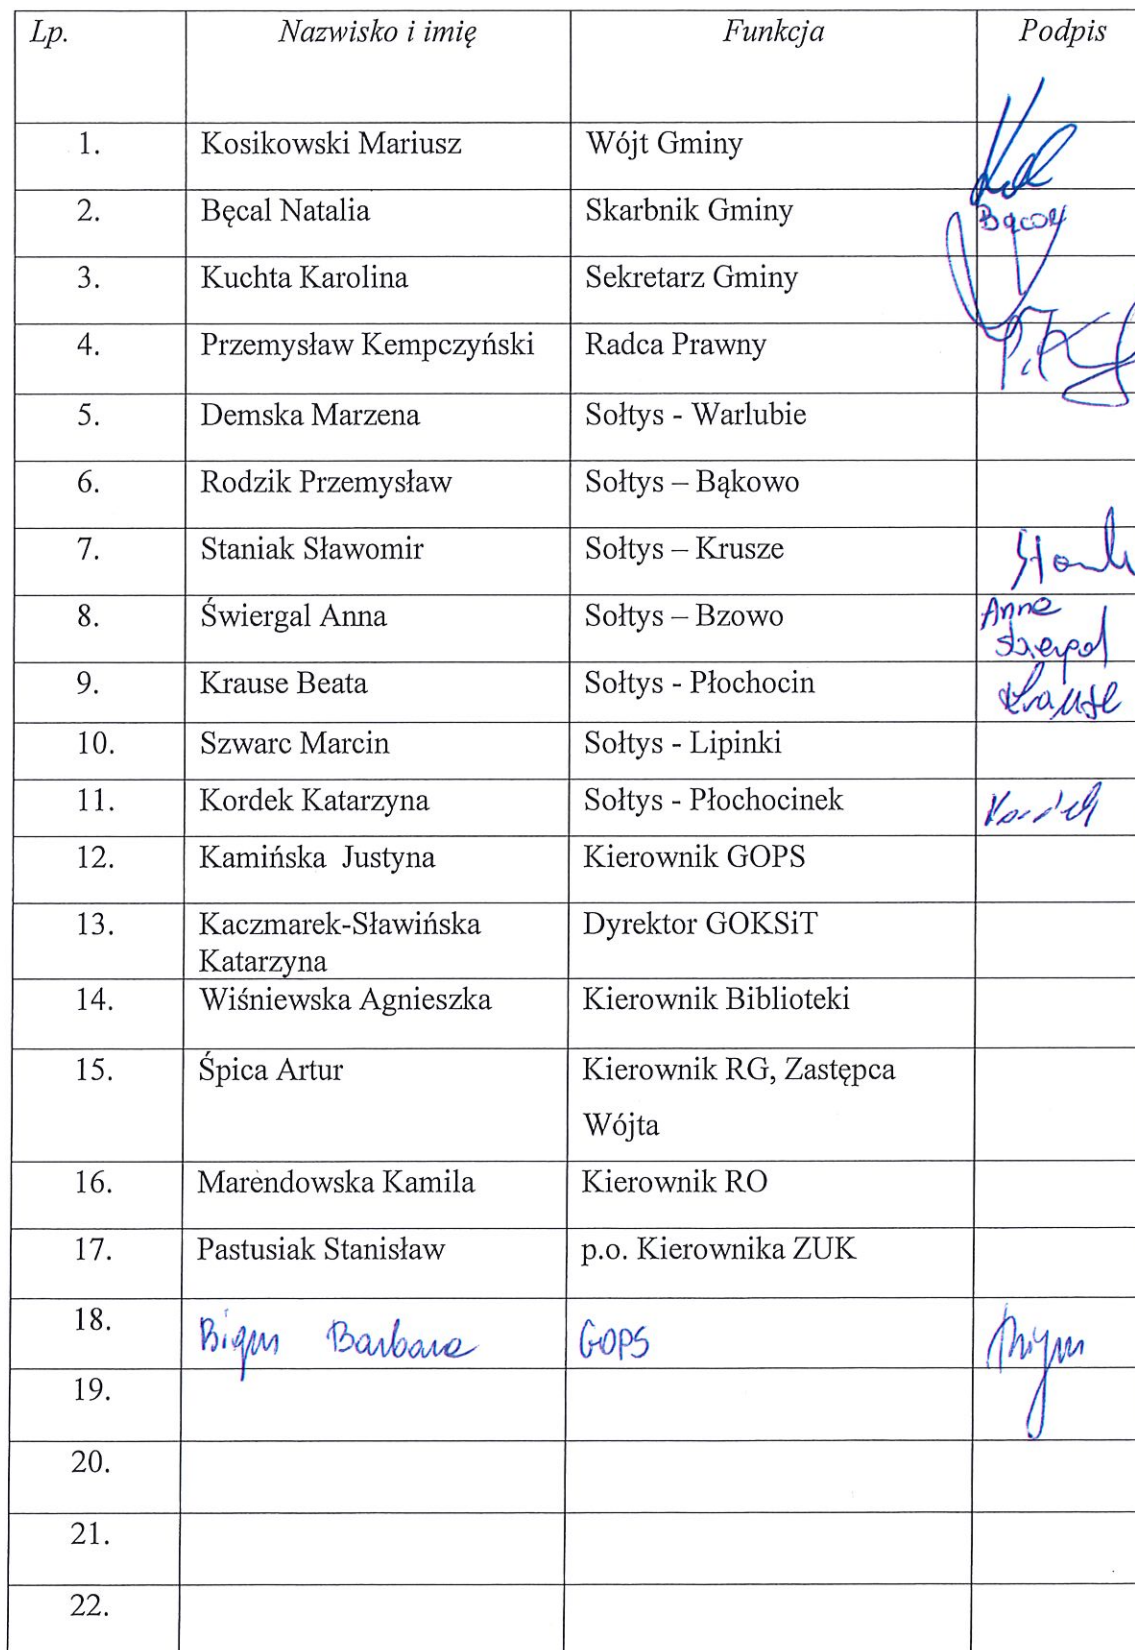 Lp. Nazwisko i imię Funkcja Podpis
1. Kosikowski Mariusz Wójt Gminy
2. Bęcal Natalia Skarbnik Gminy
3. Kuchta Karolina Sekretarz Gminy
4. Przemysław Kempczyński Radca Prawny
5. Demska Marzena Sołtys - Warlubie
6. Rodzik Przemysław Sołtys – Bąkowo
7. Staniak Sławomir Sołtys – Krusze
8. Świergal Anna Sołtys – Bzowo Anna
9. Krause Beata Sołtys - Płochocin Krause
10. Szwarc Marcin Sołtys - Lipinki
11. Kordek Katarzyna Sołtys - Płochocinek Kordek
12. Kamińska Justyna Kierownik GOPS
13. Kaczmarek-Sławińska Dyrektor GOKSiT
Katarzyna
14. Wiśniewska Agnieszka Kierownik Biblioteki
15. Śpica Artur Kierownik RG, Zastępca
Wójta
16. Marendowska Kamila Kierownik RO
17. Pastusiak Stanisław p.o. Kierownika ZUK
18. Barbara GOPS
19.
20.
21.
22.